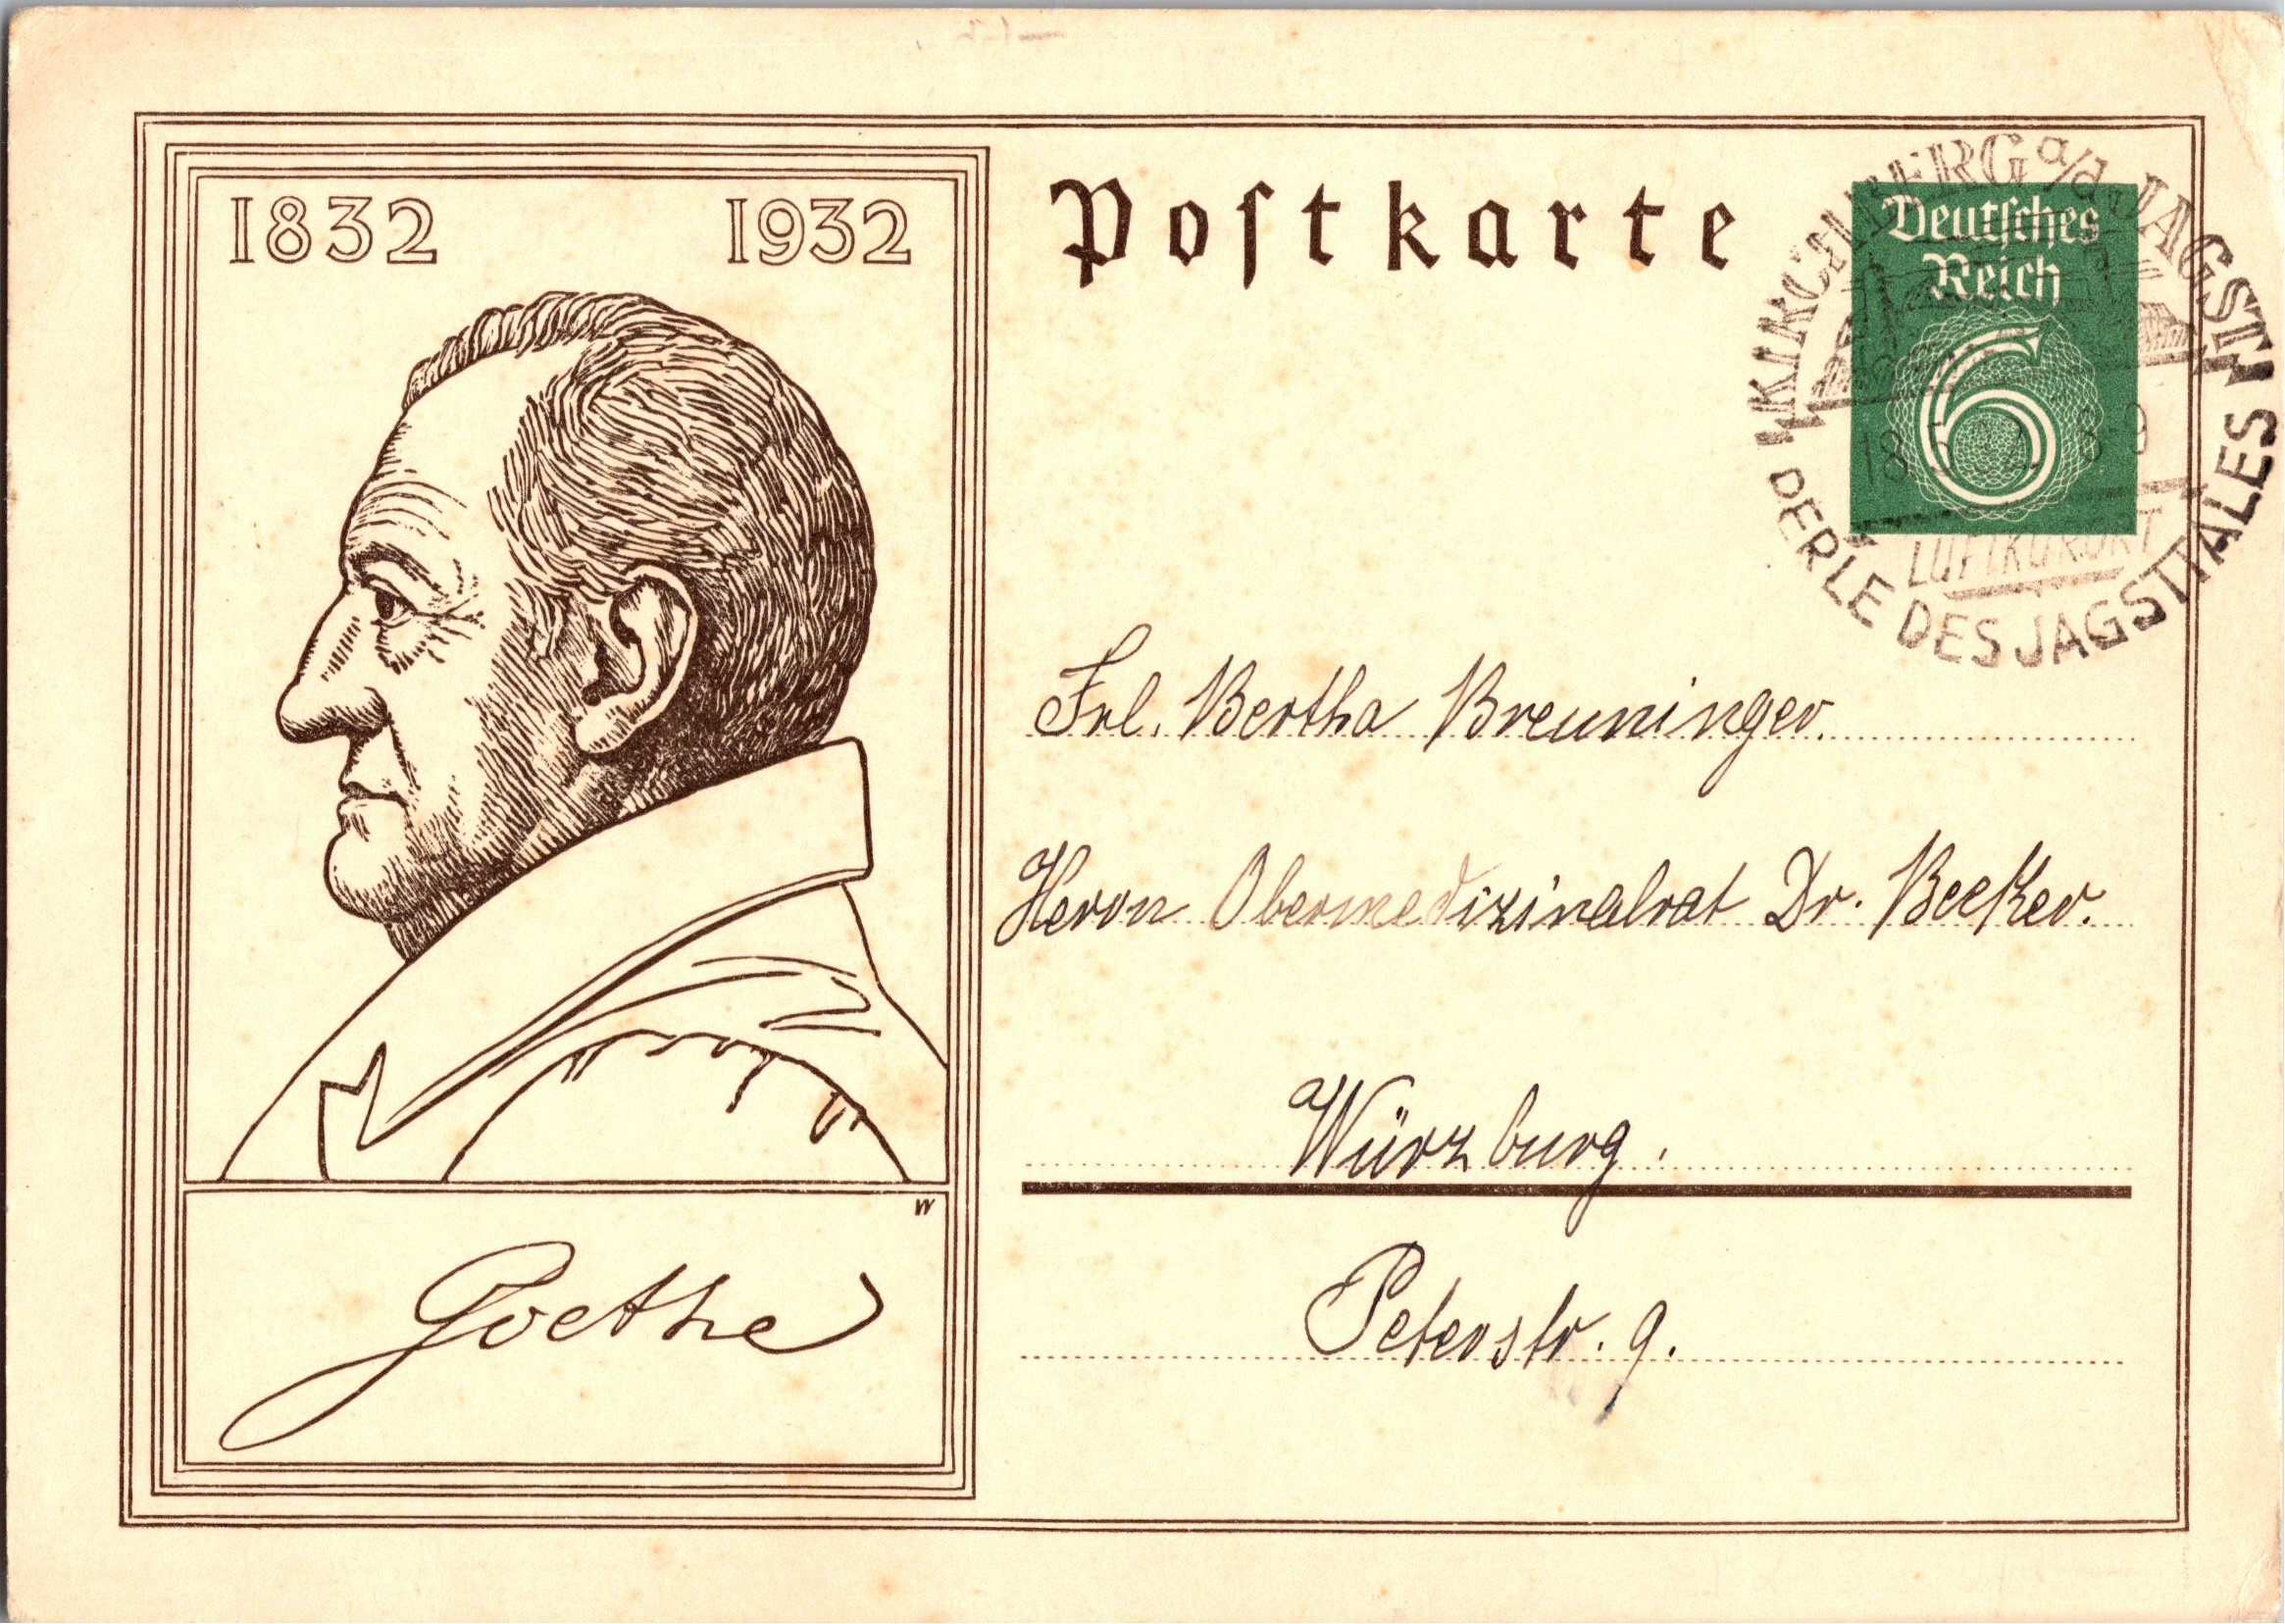 1832 1932
Postkarte
Deutsches
Reich
6
KIRCHBERG a/d JAGST
LUFTKURORT
PERLE DES JAGSTTALES
Frl. Bertha Breuninger.
Herrn Obermedizinalrat Dr. Becker.
Würzburg.
Peterstr. 9.
W
Goethe